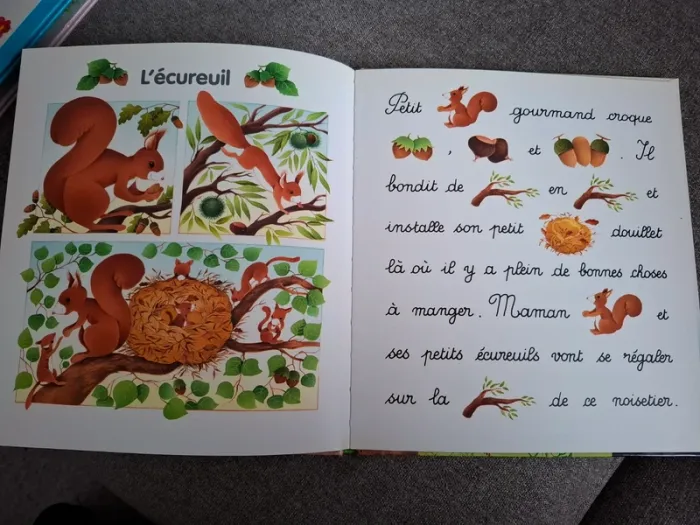 L'écureuil
Petit gourmand croque
, et . Il
bondit de en et
installe son petit douillet
là où il y a plein de bonnes choses
à manger. Maman et
ses petits écureuils vont se régaler
sur la de ce noisetier.